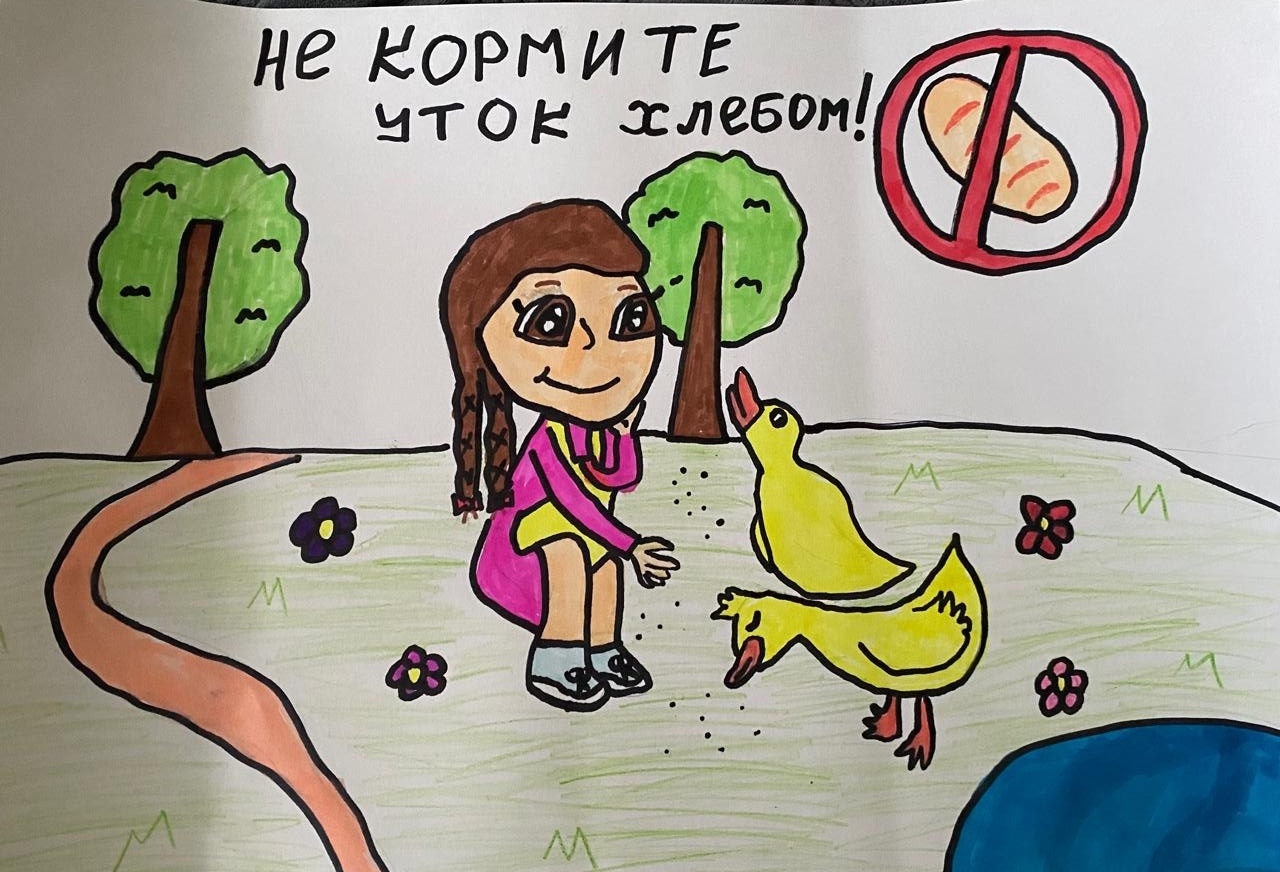 Не КОРМИТЕ
УТОК ХЛеБОМ!